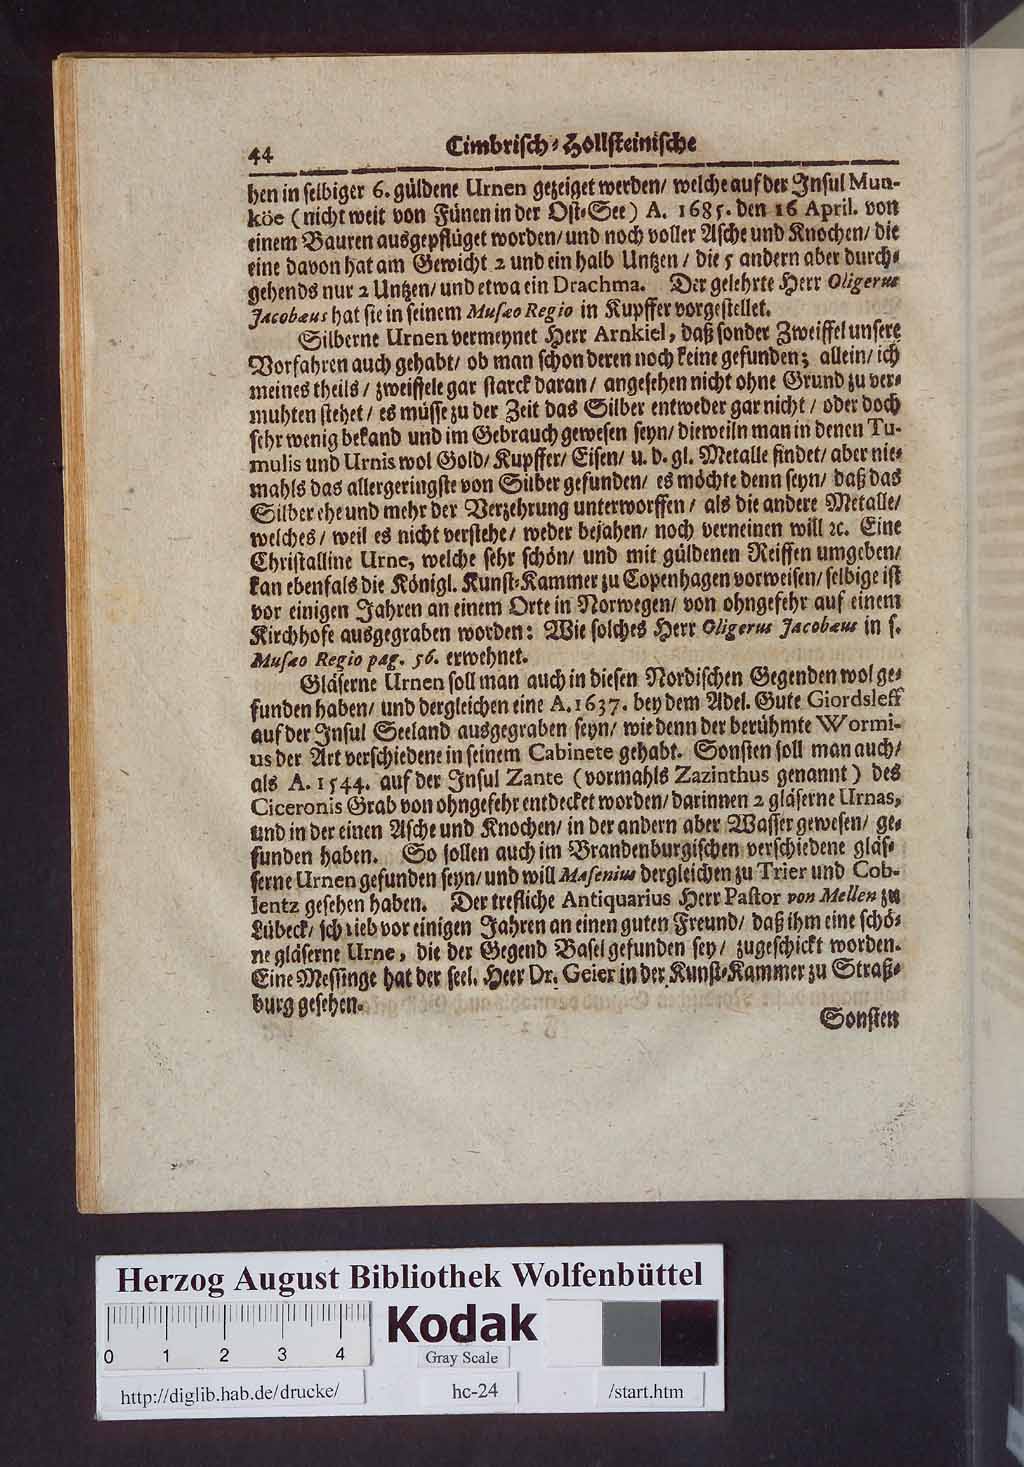 44 Cimbrisch-Hollsteinische
hen in selbiger 6. güldene Urnen gezeiget werden/ welche auf der Insul Mun-
köe (nicht weit von Fünen in der Ost-See) A. 1685. den 16 April. von
einem Bauren ausgepflüget worden/ und noch voller Asche und Knochen/ die
eine davon hat am Gewicht 2 und ein halb Untzen/ die 5 andern aber durch-
gehends nur 2 Untzen/ und etwa ein Drachma. Der gelehrte Herr Oligerus
Jacobæus hat sie in seinem Musæo Regio in Kupffer vorgestellet.
Silberne Urnen vermeynet Herr Arnkiel, daß sonder Zweiffel unsere
Vorfahren auch gehabt/ ob man schon deren noch keine gefunden; allein/ ich
meines theils/ zweiffele gar starck daran/ angesehen nicht ohne Grund zu ver-
muhten stehet/ es müsse zu der Zeit das Silber entweder gar nicht/ oder doch
sehr wenig bekand und im Gebrauch gewesen seyn/ dieweiln man in denen Tu-
mulis und Urnis wol Gold/ Kupffer/ Eisen/ u. d. gl. Metalle findet/ aber nie-
mahls das allergeringste von Silber gefunden/ es möchte denn seyn/ daß das
Silber ehe und mehr der Verzehrung unterworffen/ als die andere Metalle/
welches/ weil es nicht verstehe/ weder bejahen/ noch verneinen will ꝛc. Eine
Christalline Urne, welche sehr schön/ und mit güldenen Reiffen umgeben/
kan ebenfals die Königl. Kunst-Kammer zu Copenhagen vorweisen/ selbige ist
vor einigen Jahren an einem Orte in Norwegen/ von ohngefehr auf einem
Kirchhofe ausgegraben worden: Wie solches Herr Oligerus Jacobæus in s.
Musæo Regio pag. 56. erwehnet.
Gläserne Urnen soll man auch in diesen Nordischen Gegenden wol ge-
funden haben/ und dergleichen eine A. 1637. bey dem Adel. Gute Giordsleff
auf der Insul Seeland ausgegraben seyn/ wie denn der berühmte Wormi-
us der Art verschiedene in seinem Cabinete gehabt. Sonsten soll man auch/
als A. 1544. auf der Insul Zante (vormahls Zazinthus genannt) des
Ciceronis Grab von ohngefehr entdecket worden/ darinnen 2 gläserne Urnas,
und in der einen Asche und Knochen/ in der andern aber Wasser gewesen/ ge-
funden haben. So sollen auch im Brandenburgischen verschiedene gläs-
serne Urnen gefunden seyn/ und will Masenius dergleichen zu Trier und Cob-
lentz gesehen haben. Der trefliche Antiquarius Herr Pastor von Mellen zu
Lübeck/ schrieb vor einigen Jahren an einen guten Freund/ daß ihm eine schö-
ne gläserne Urne, die der Gegend Basel gefunden sey/ zugeschickt worden.
Eine Messinge hat der seel. Herr Dr. Geier in der Kunst-Kammer zu Straß-
burg gesehen.
Sonsten
Herzog August Bibliothek Wolfenbüttel
Kodak
0 1 2 3 4
Gray Scale
http://diglib.hab.de/drucke/ hc-24 /start.htm